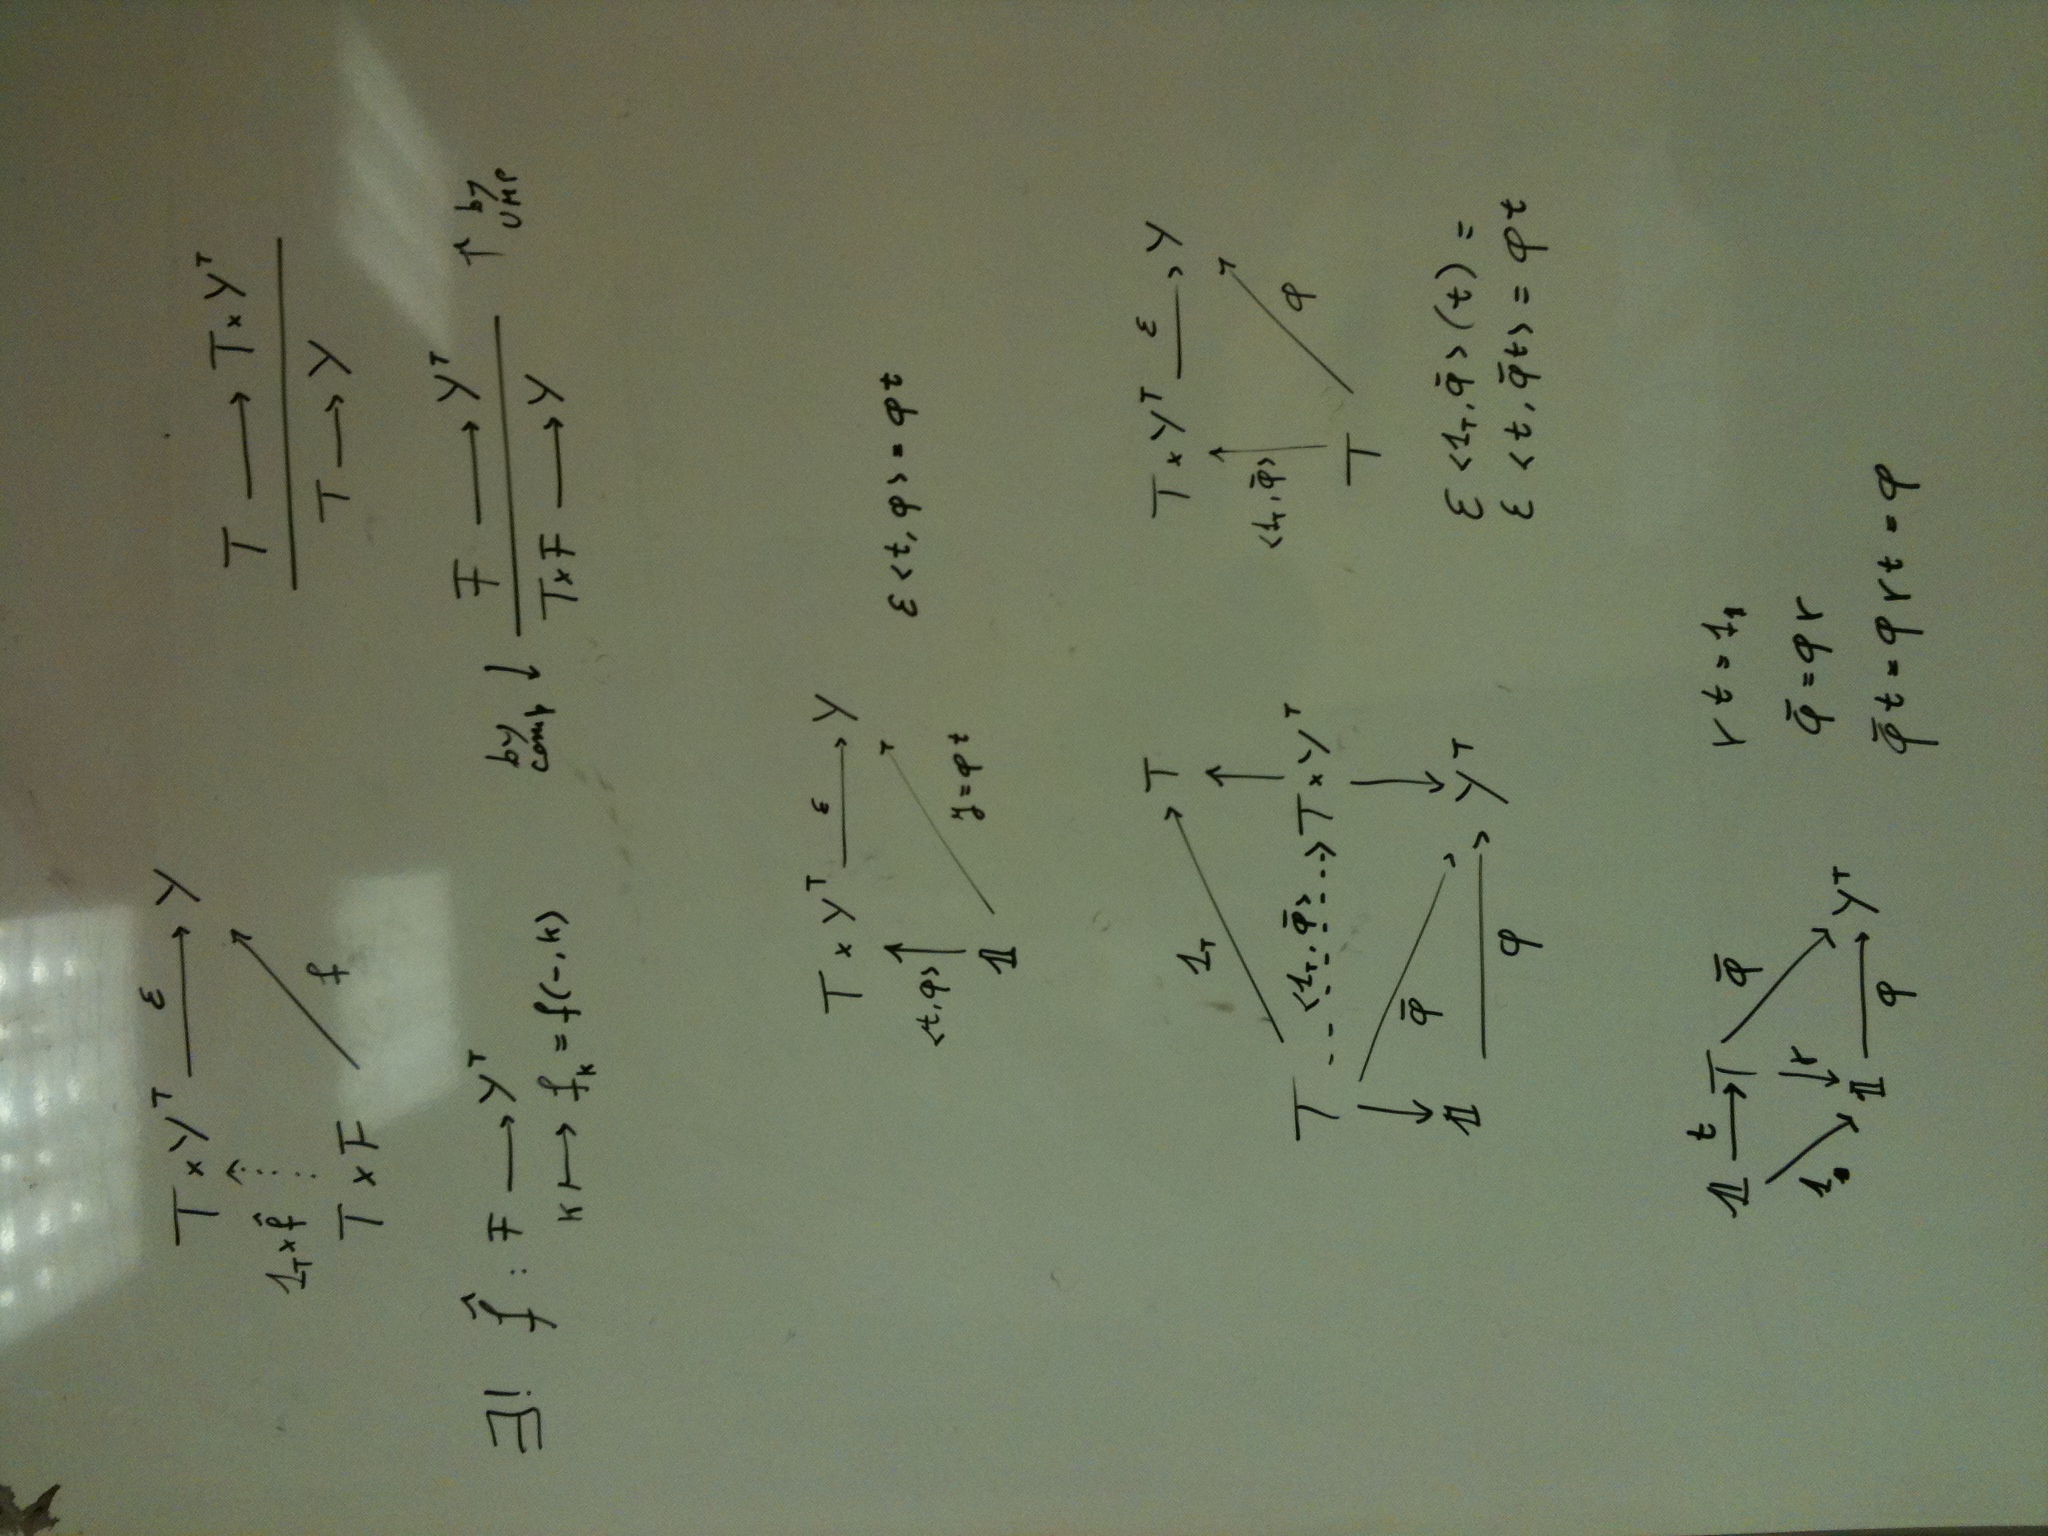 T × Y^T ⟶ Y
ε
1_T × f̂
T × F
f
T ⟶ T × Y^T
T ⟶ Y
∃! f̂ : F ⟶ Y^T
k ⟼ f_k = f(-, k)
by comp ↓
F ⟶ Y^T
T × F ⟶ Y
↑ by UMP
T × Y^T ⟶ Y
ε
<t, φ>
𝟙
y = φt
ε <t, φ> = φt
T
1_T
T
<1_T, φ̄>
T × Y^T
φ̄
𝟙
φ
Y^T
T × Y^T ⟶ Y
ε
<1_T, φ̄>
φ
T
ε <1_T, φ̄> (t) =
ε <t, φ̄t> = φt
𝟙 ⟶ T
t
φ̄
r
1_𝟙
𝟙 ⟶ Y^T
φ
r t = 1_𝟙
φ̄ = φ r
φ̄ t = φ r t = φ